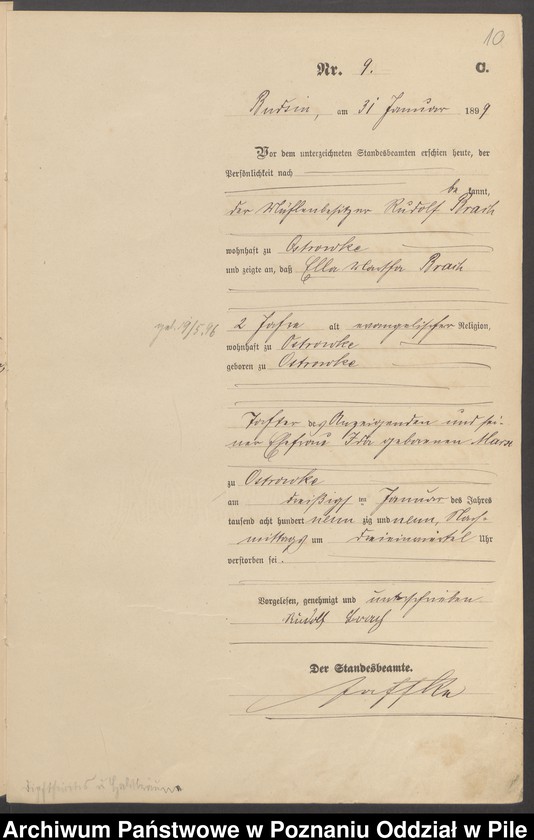 10
Nr. 9. C.
am 31 Januar 1899
Vor dem unterzeichneten Standesbeamten erschien heute, der
Persönlichkeit nach
be kannt,
der Mühlenbesitzer Rudolf Brach
wohnhaft zu Ostrowke
und zeigte an, daß Ella Martha Brach
geb. 9/5.96
2 Jahre alt evangelischer Religion,
wohnhaft zu Ostrowke
geboren zu Ostrowke
Tochter des Anzeigenden und sei-
ner Ehefrau Ida geborenen
zu Ostrowke
am dreißigsten Januar des Jahres
tausend acht hundert neunzig und neun, Nach-
mittags um Uhr
verstorben sei.
Vorgelesen, genehmigt und unterschrieben
Rudolf Brach
Der Standesbeamte.
Archiwum Państwowe w Poznaniu Oddział w Pile